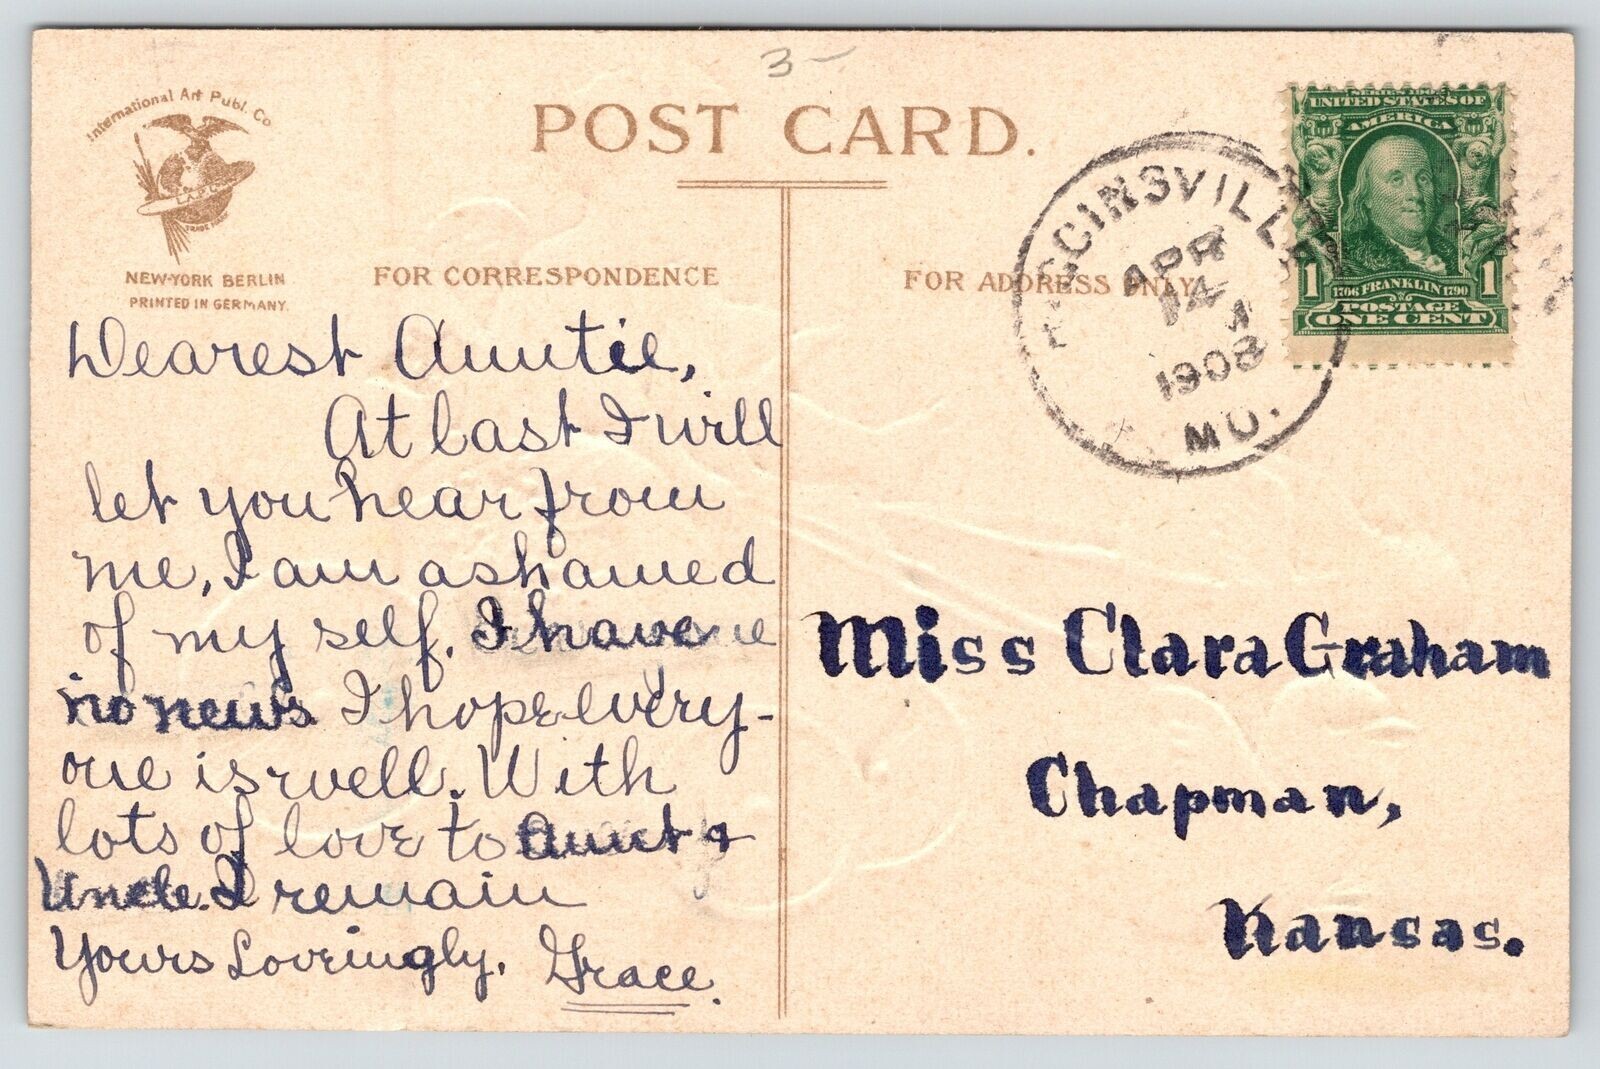 3-
International Art Publ. Co
TRADE MARK
NEW-YORK BERLIN
PRINTED IN GERMANY.
POST CARD.
FOR CORRESPONDENCE
Dearest Auntie,
At last I will
let you hear from
me, I am ashamed
of my self. I have
no news. I hope every-
one is well. With
lots of love to Aunt &
Uncle. I remain
Yours Lovingly,
Grace.
FOR ADDRESS ONLY
GINSVILLE
APR
14
1908
MO.
UNITED STATES OF
AMERICA
1 1
1706 FRANKLIN 1790
POSTAGE
ONE CENT
Miss Clara Graham
Chapman,
Kansas.